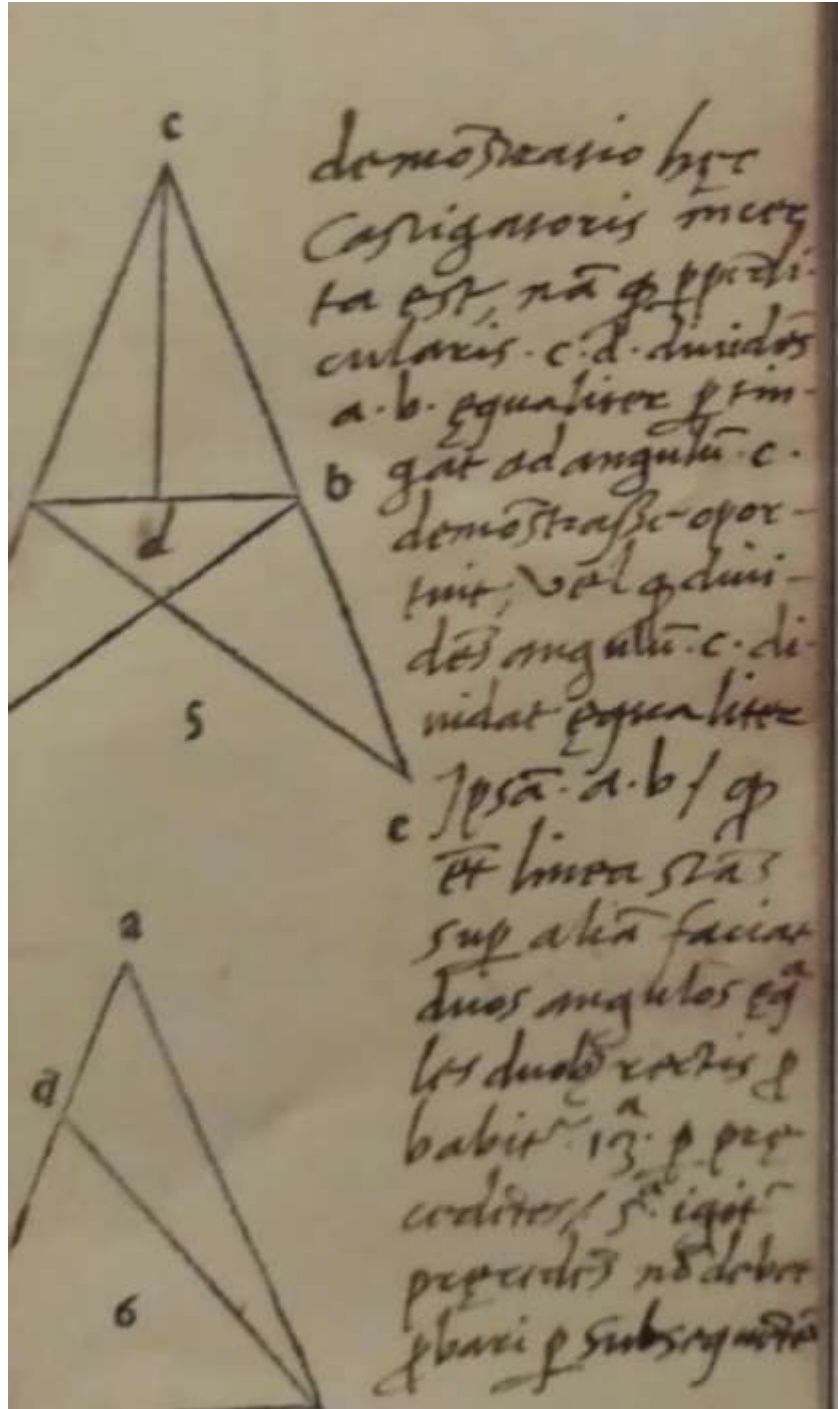 c
demōstratio hęc
Castigatoris īncer
ta est, nā ꝙ ꝑpēdi-
cularis · c · d · diuidēs
a · b · ęqualiter ꝑtin-
gat ad angulū · c ·
b
d
demōstrasse opor-
tuit, vel ꝙ diui-
dēs angulū · c · di-
uidat ęqualiter
5
Ipsā · a · b / ꝙ
e
et linea stās
suꝑ aliā faciat
a
duos angulos ęqᵃ
les duobꝫ rectis ꝓ
d
babit᷑ · 13ᵃ · ꝑ prę
cedētes / 5ᵃ · igit᷑
pręcedēs nō debet
6
ꝓbari ꝑ subsequētē